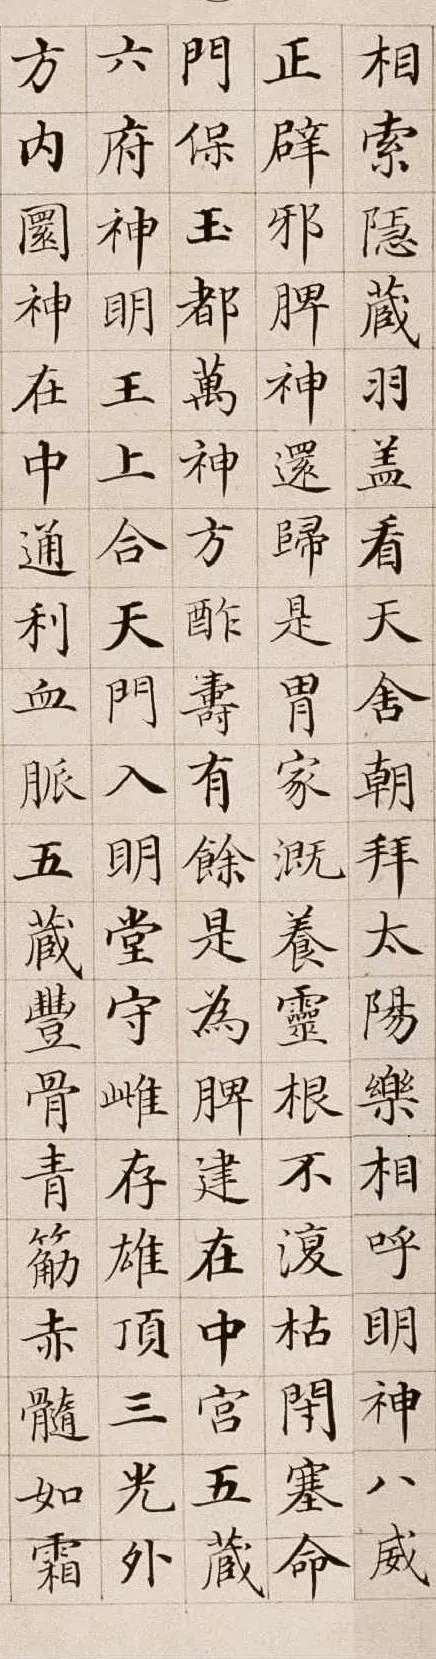 相索隱藏羽盖看天舍朝拜太陽樂相呼明神八威
正辟邪脾神還歸是胃家溉養靈根不復枯閇塞命
門保玉都萬神方酢壽有餘是為脾建在中宮五藏
六府神明王上合天門入明堂守雌存雄頂三光外
方内圓神在中通利血脈五藏豐骨青筋赤髓如霜